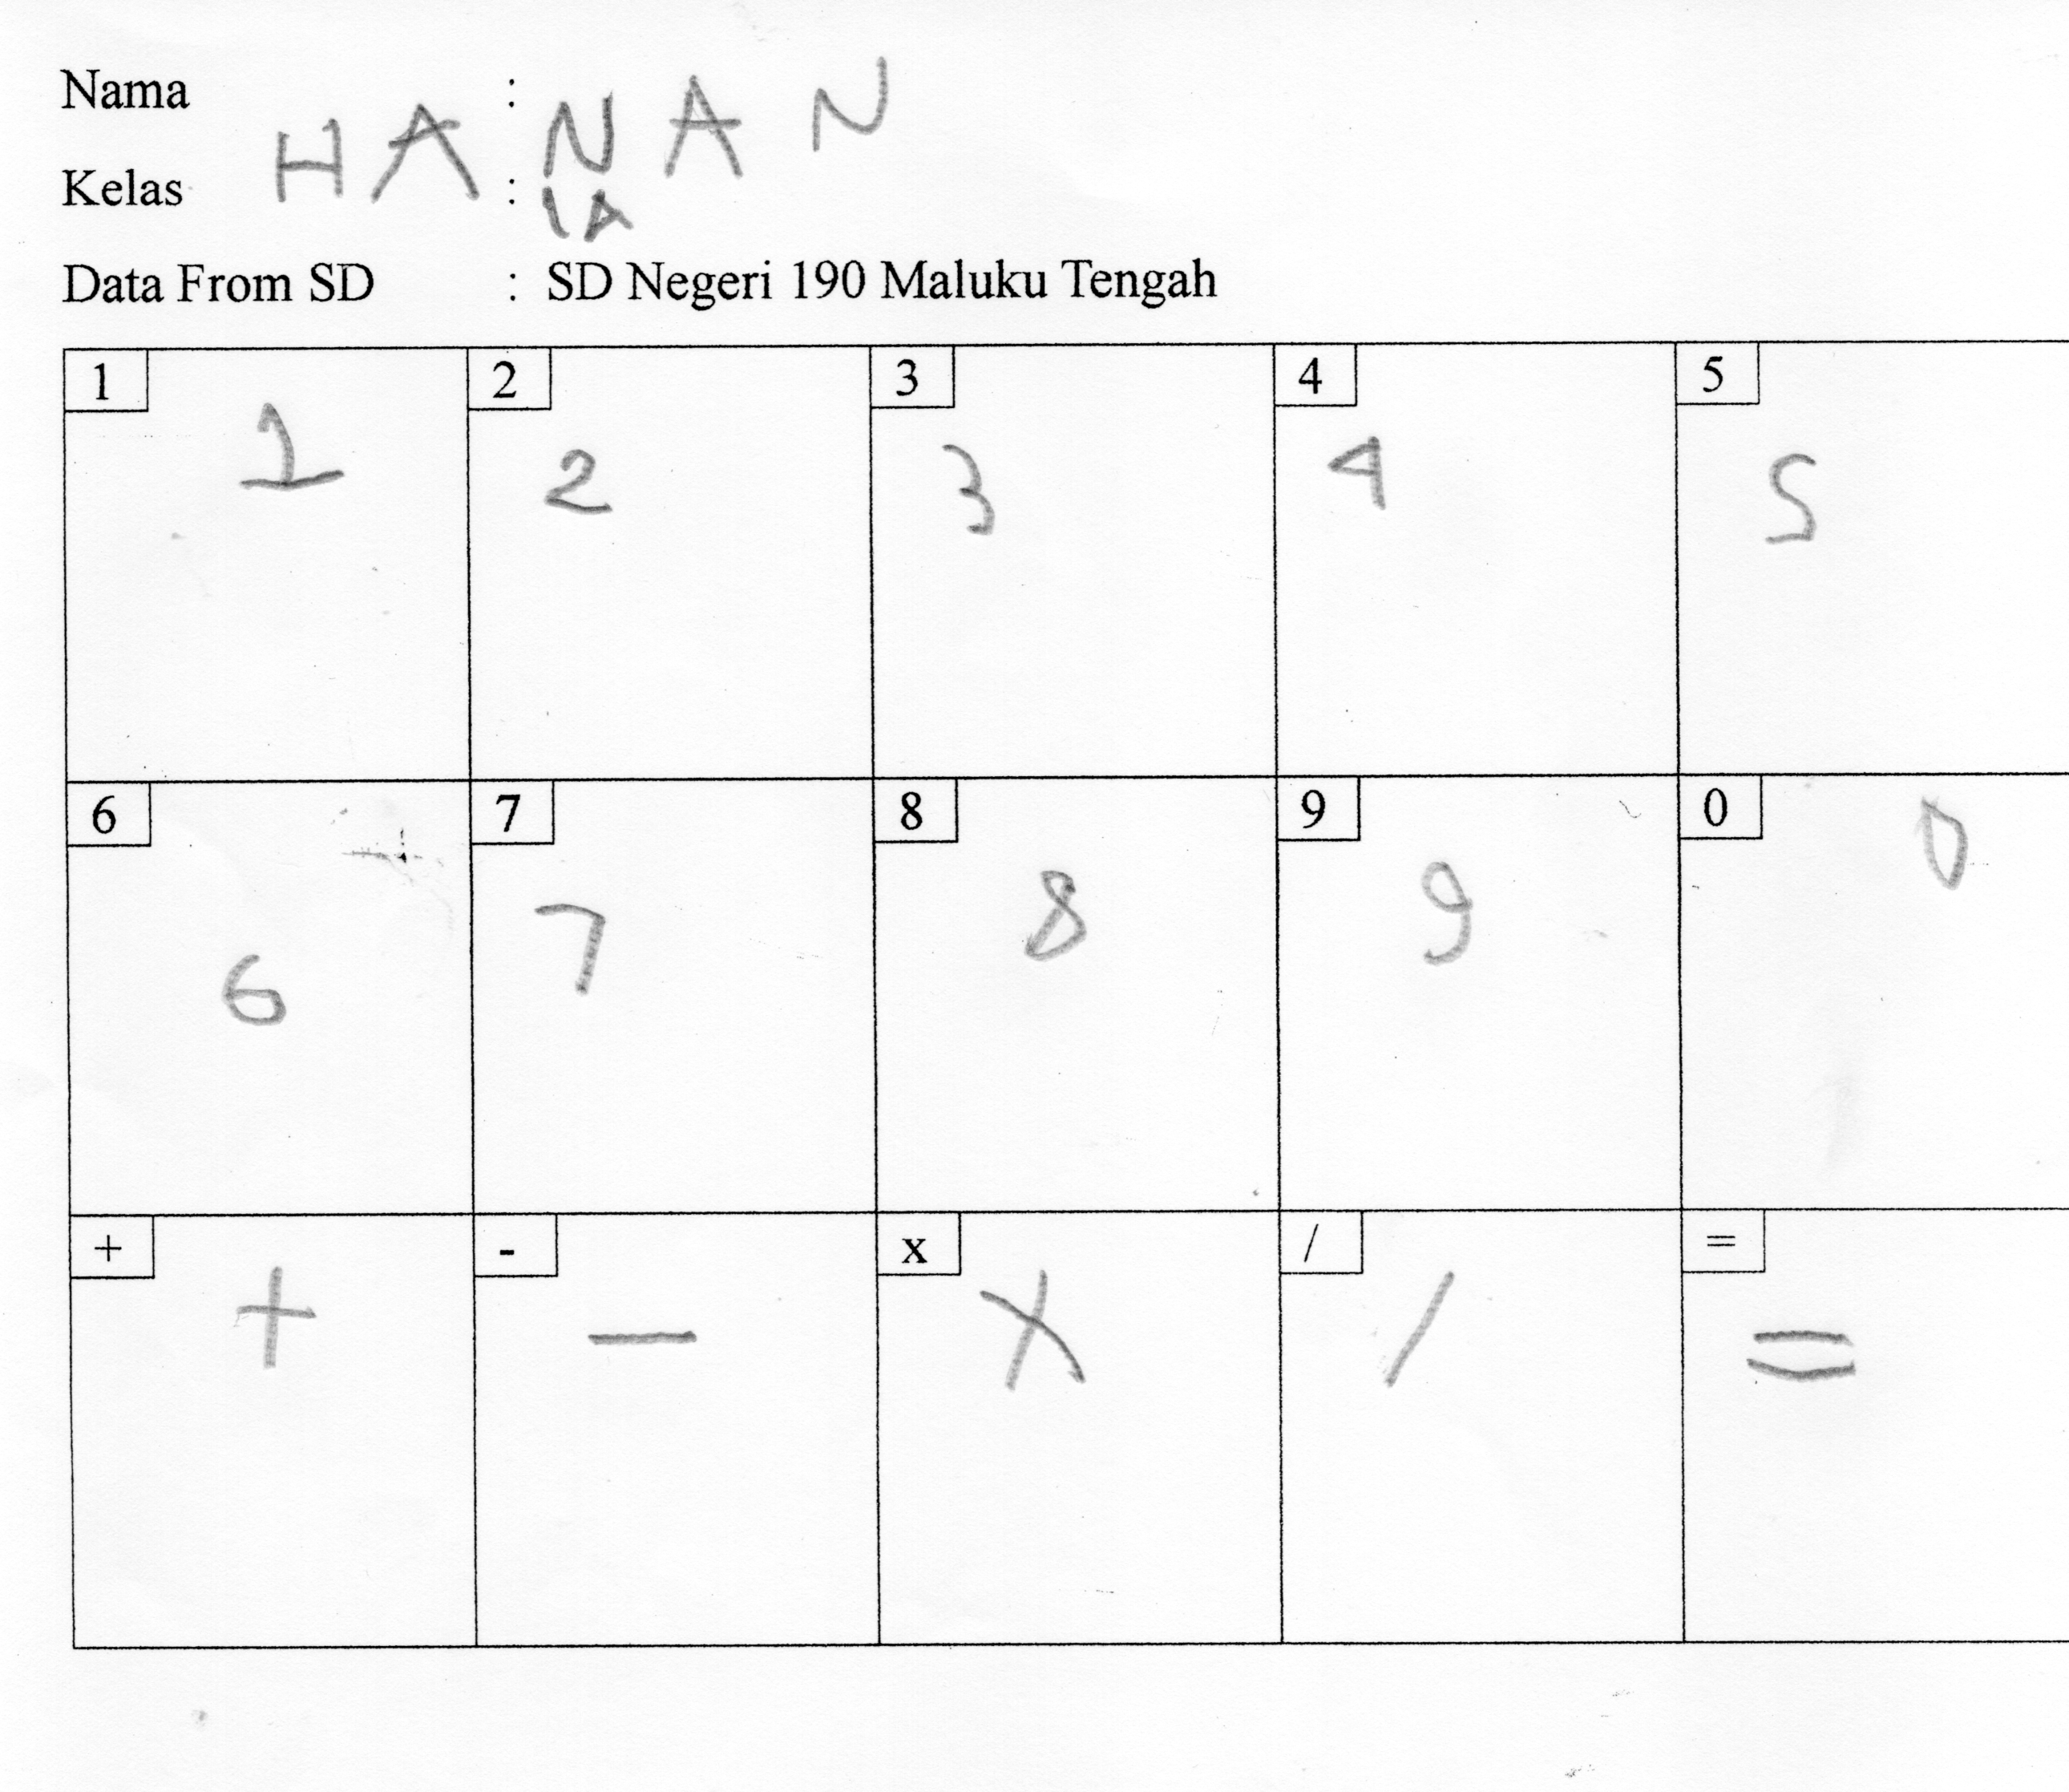 Nama : HANAN
Kelas : 1A
Data From SD : SD Negeri 190 Maluku Tengah
1 2 3 4 5
1 2 3 4 5
6 7 8 9 0
6 7 8 9 0
+ - x / =
+ - x / =